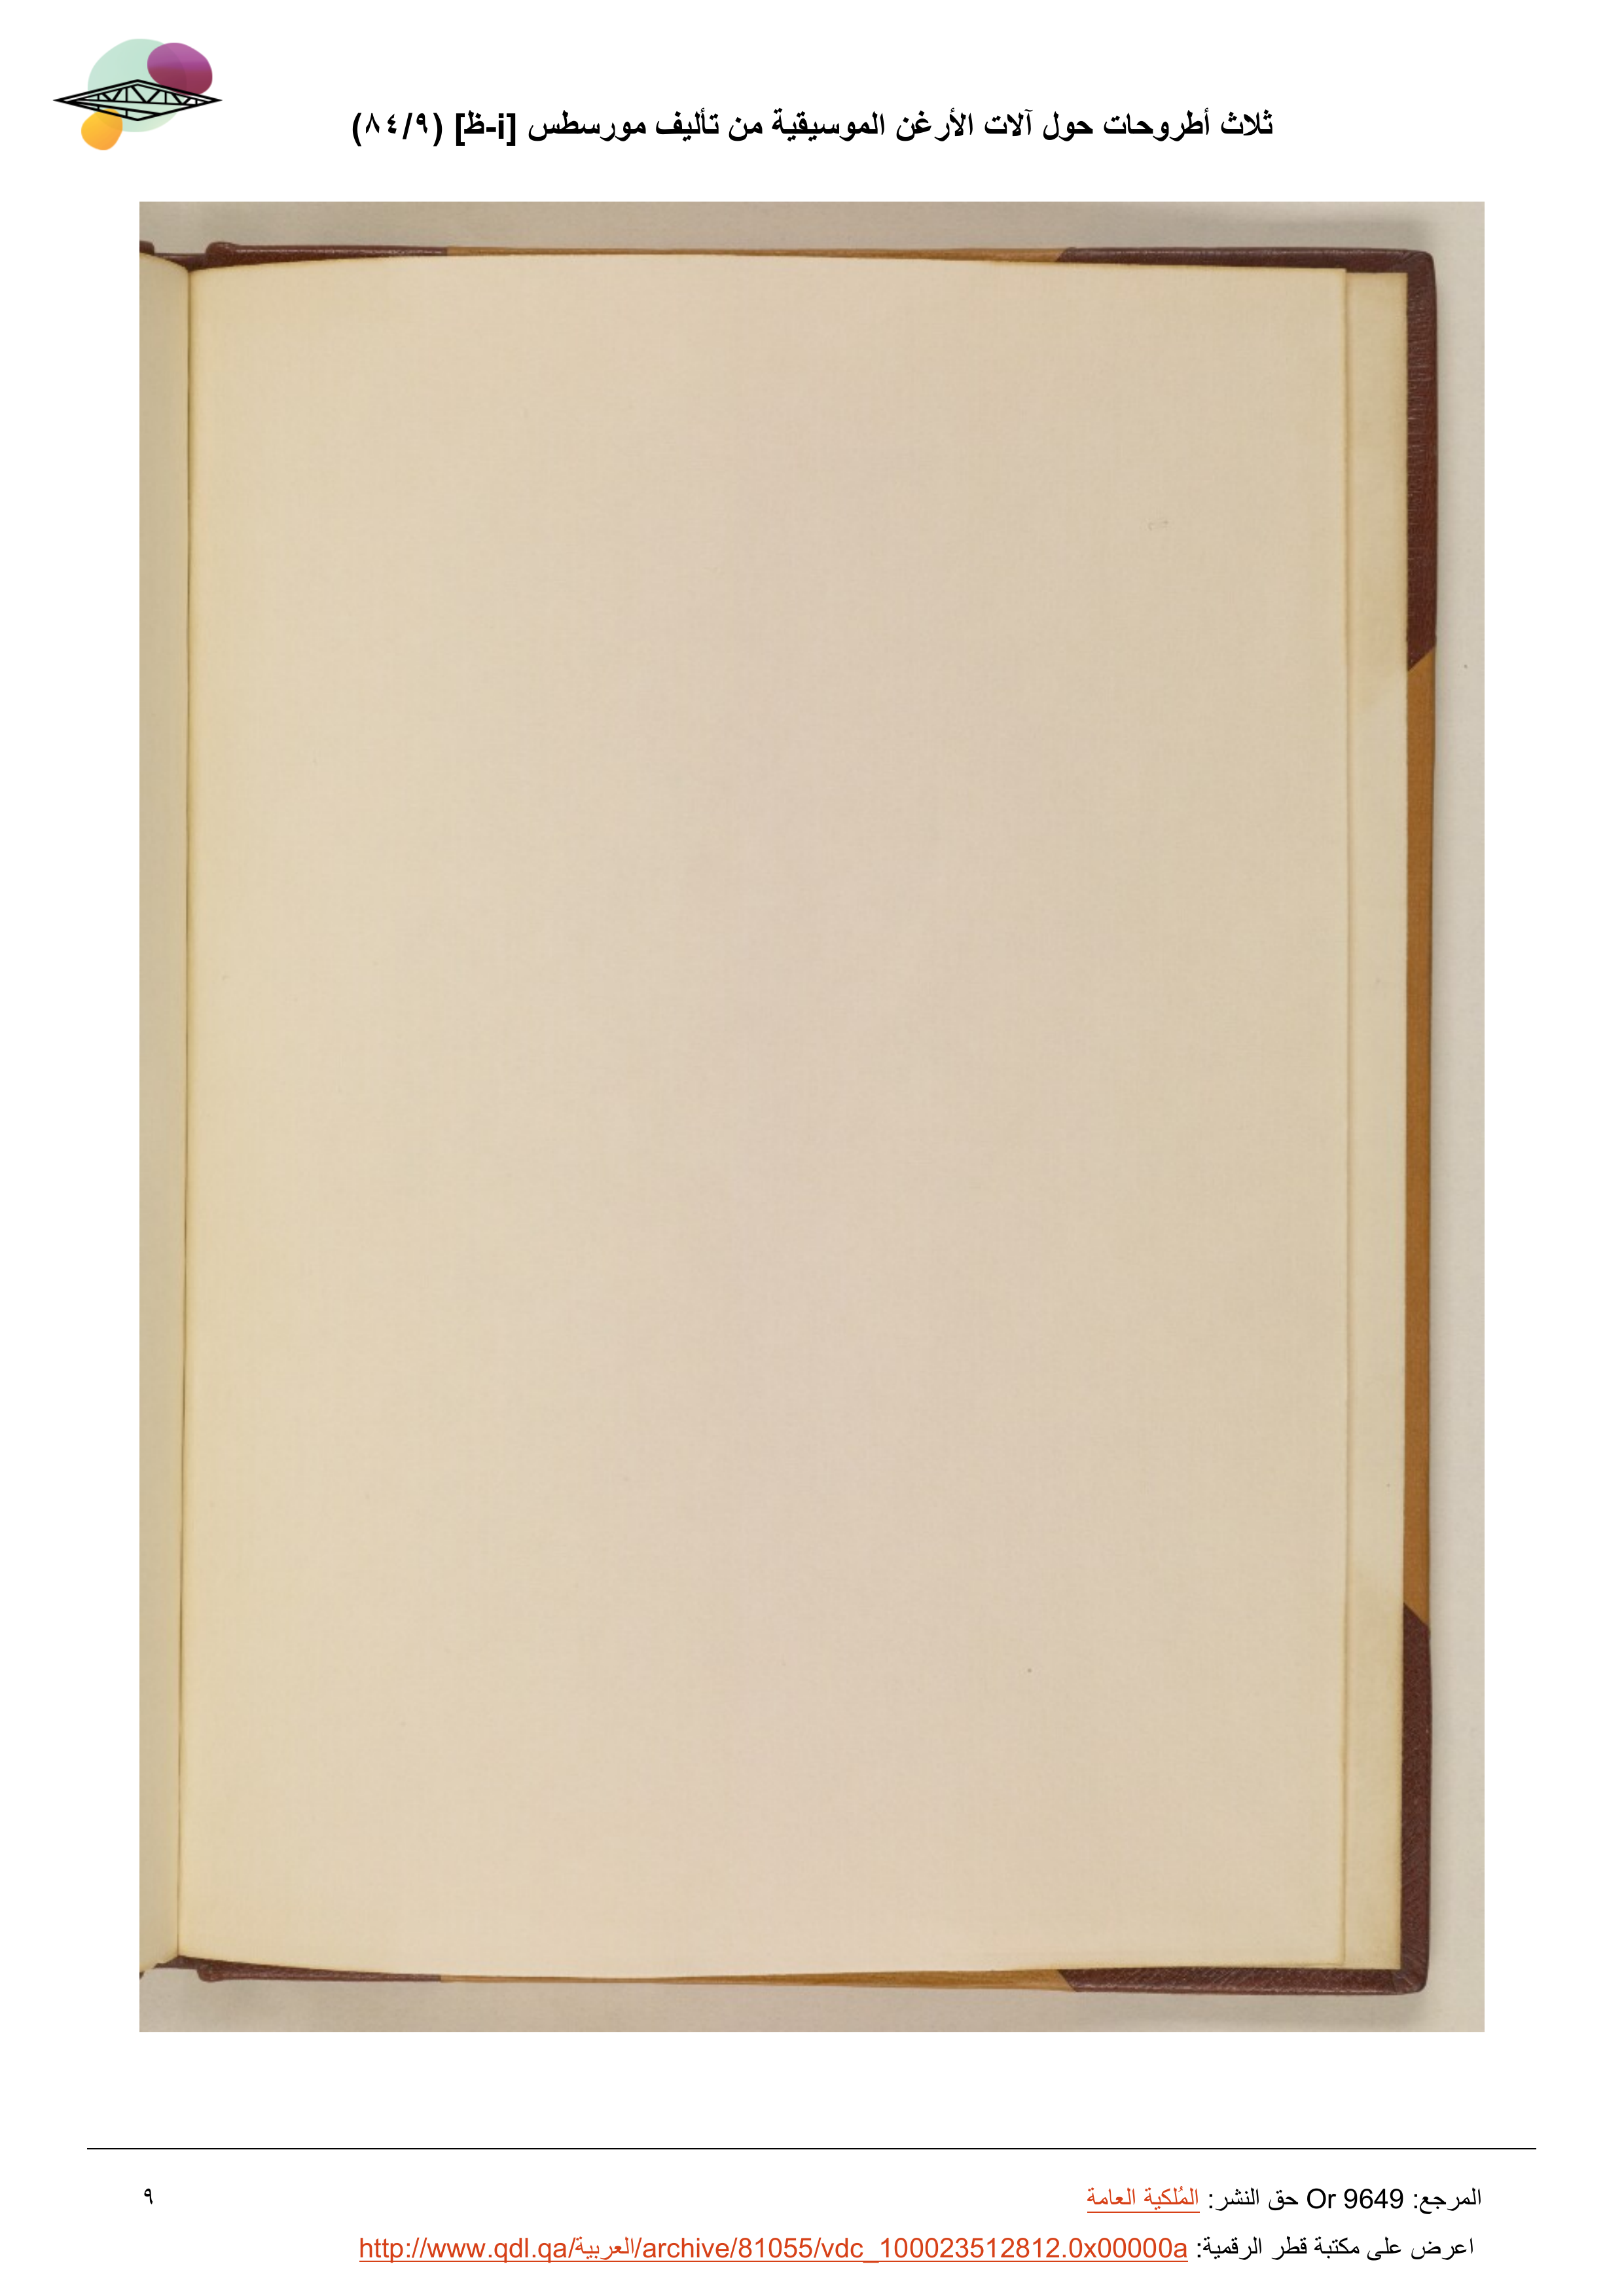 ثلاث أطروحات حول آلات الأرغن الموسيقية من تأليف مورسطس [i-ظ] (٨٤/٩)
المرجع: Or 9649 حق النشر: المُلكية العامة
٩
اعرض على مكتبة قطر الرقمية: http://www.qdl.qa/العربية/archive/81055/vdc_100023512812.0x00000a